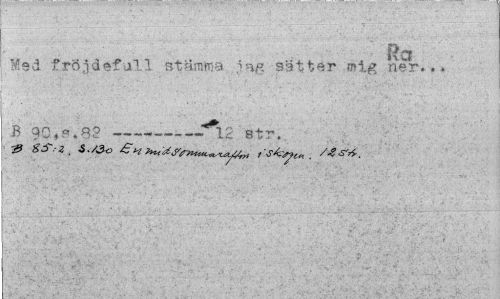 Ra
Med fröjdefull stämma jag sätter mig ner...
B 90,s.82 --------- 12 str.
B 85:2, s.130 En midsommarafton i skogen. 12 str.